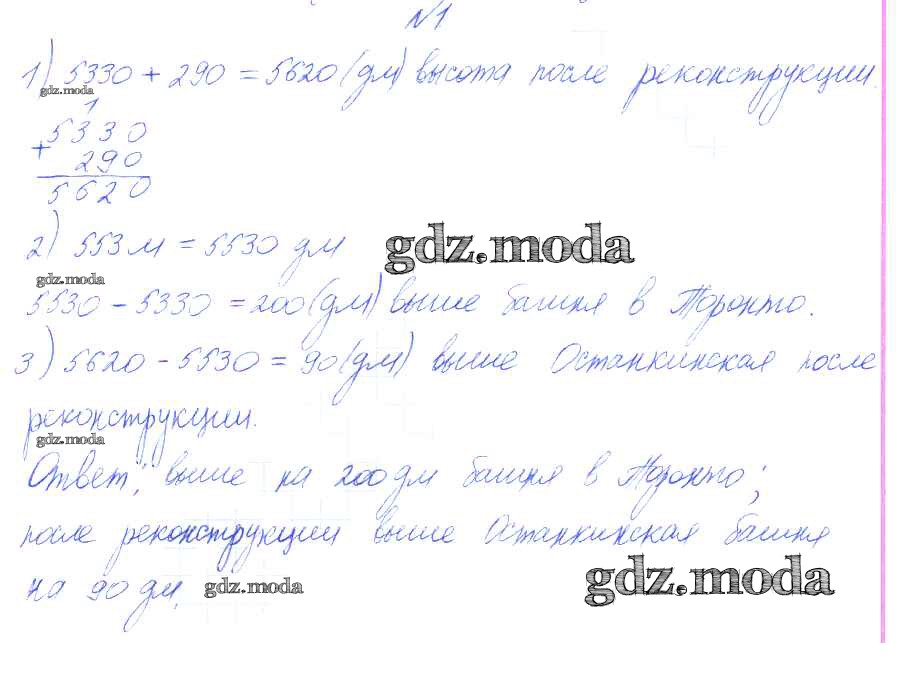 №1
1) 5330 + 290 = 5620 (дм) высота после реконструкции.
gdz.moda
1
5330
+ 290
5620
2) 553 м = 5530 дм
gdz.moda
gdz.moda
5530 - 5330 = 200 (дм) выше башня в Торонто.
3) 5620 - 5530 = 90 (дм) выше Останкинская после
реконструкции.
gdz.moda
Ответ: выше на 200 дм башня в Торонто;
после реконструкции выше Останкинская башня
на 90 дм.
gdz.moda
gdz.moda